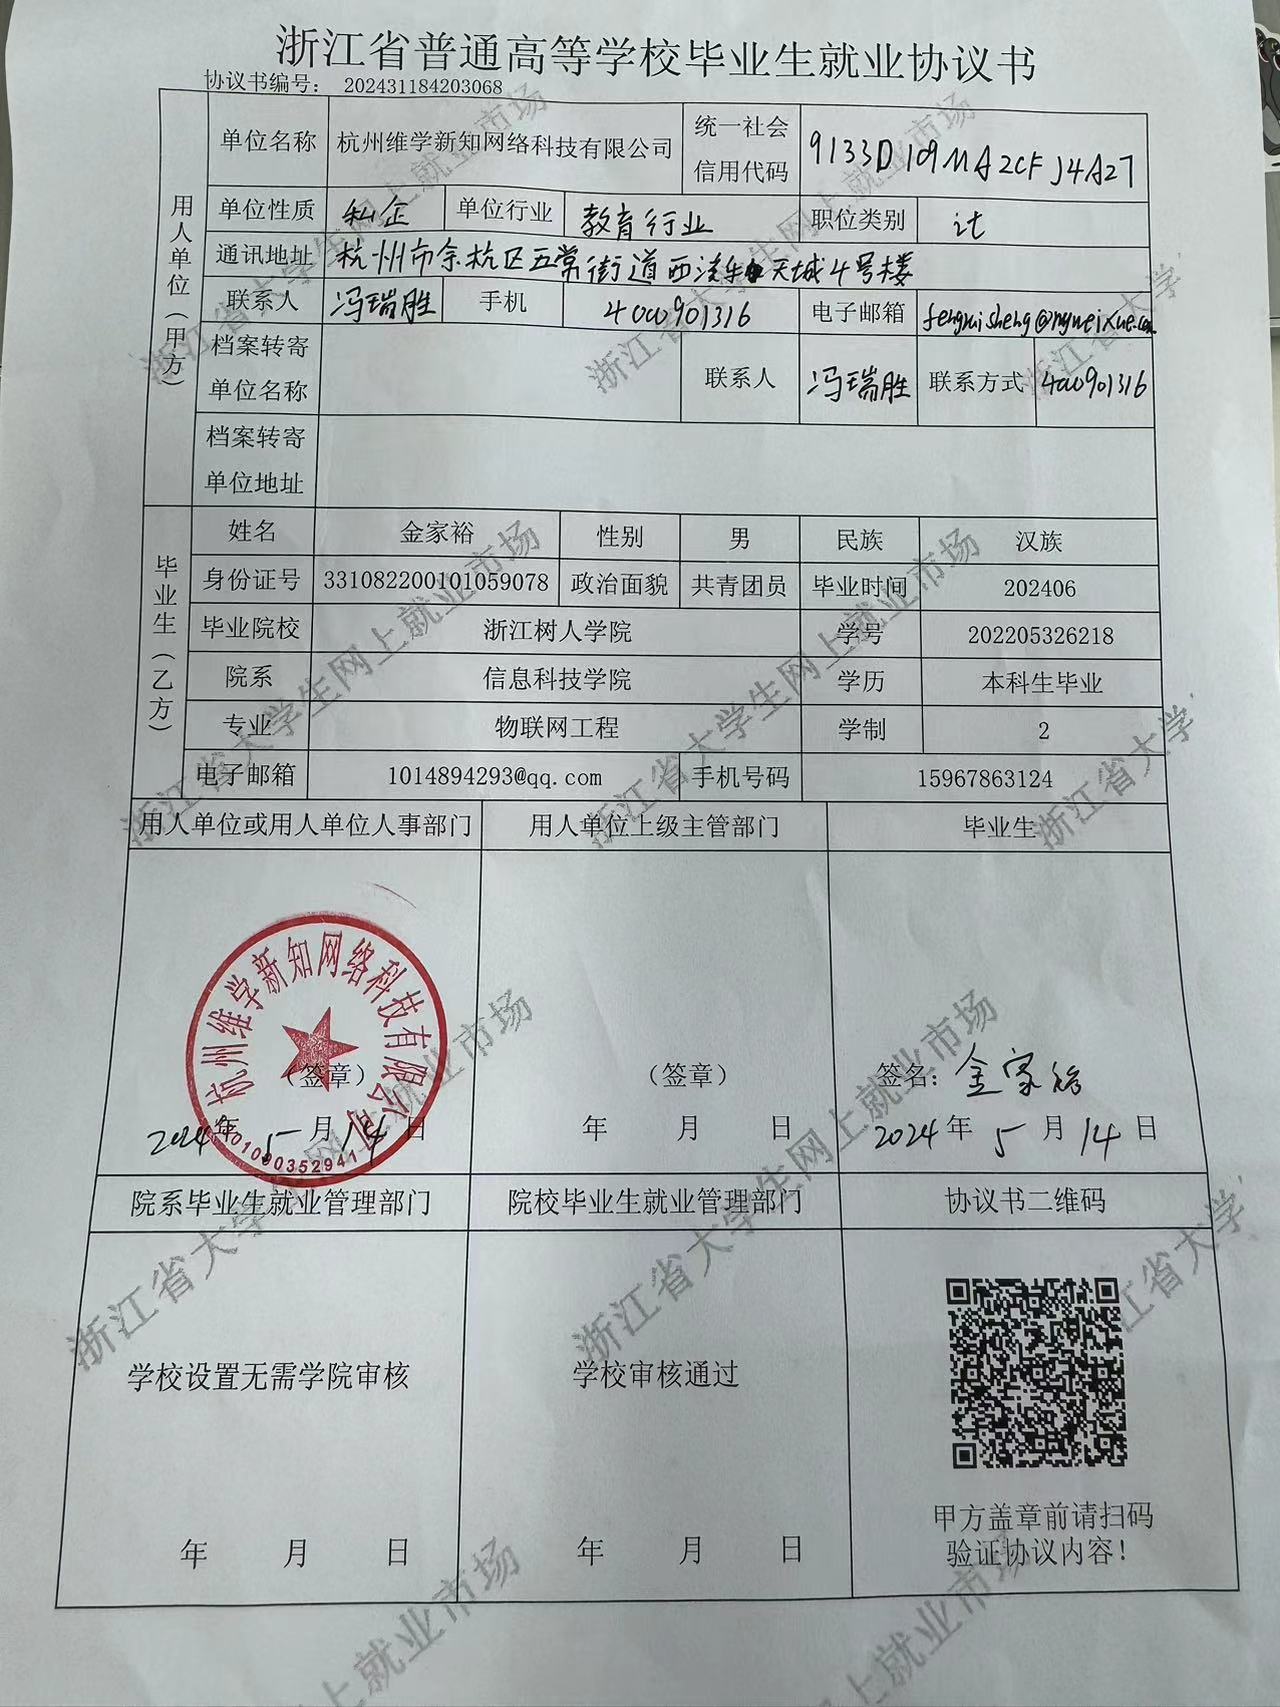 浙江省普通高等学校毕业生就业协议书
协议书编号： 202431184203068
用人单位（甲方）
单位名称 杭州维学新知网络科技有限公司 统一社会信用代码 9133D109MA2CFJ4A27
单位性质 私企 单位行业 教育行业 职位类别 it
通讯地址 杭州市余杭区五常街道西溪 天城4号楼
联系人 冯瑞胜 手机 400901316 电子邮箱
档案转寄单位名称 联系人 冯瑞胜 联系方式 400901316
档案转寄单位地址
毕业生（乙方）
姓名 金家裕 性别 男 民族 汉族
身份证号 331082200101059078 政治面貌 共青团员 毕业时间 202406
毕业院校 浙江树人学院 学号 202205326218
院系 信息科技学院 学历 本科生毕业
专业 物联网工程 学制 2
电子邮箱 1014894293@qq.com 手机号码 15967863124
用人单位或用人单位人事部门 用人单位上级主管部门 毕业生
杭州维学新知网络科技有限公司
（签章） （签章） 签名：金家裕
2024年 5月 14日 年 月 日 2024年 5月 14日
院系毕业生就业管理部门 院校毕业生就业管理部门 协议书二维码
学校设置无需学院审核 学校审核通过
甲方盖章前请扫码
验证协议内容！
年 月 日 年 月 日
浙江省大学生网上就业市场